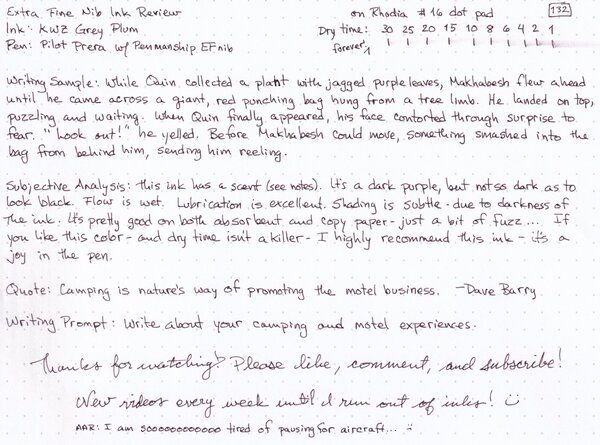 Extra Fine Nib Ink Review on Rhodia #16 dot pad 132
Ink: KWZ Grey Plum Dry time: 30 25 20 15 10 8 6 4 2 1
Pen: Pilot Prera w/ Penmanship EF nib forever
Writing Sample: While Quin collected a plant with jagged purple leaves, Makhabesh flew ahead
until he came across a giant, red punching bag hung from a tree limb. He landed on top,
puzzling and waiting. When Quin finally appeared, his face contorted through surprise to
fear. "Look out!" he yelled. Before Makhabesh could move, something smashed into the
bag from behind him, sending him reeling.
Subjective Analysis: This ink has a scent (see notes). It's a dark purple, but not so dark as to
look black. Flow is wet. Lubrication is excellent. Shading is subtle - due to darkness of
the ink. It's pretty good on both absorbent and copy paper - just a bit of fuzz... If
you like this color - and dry time isn't a killer - I highly recommend this ink - it's a
joy in the pen.
Quote: Camping is nature's way of promoting the motel business. -Dave Barry
Writing Prompt: Write about your camping and motel experiences.
Thanks for watching! Please like, comment, and subscribe!
New videos every week until I run out of inks! :)
AAR: I am soooooooooooo tired of pausing for aircraft... :)